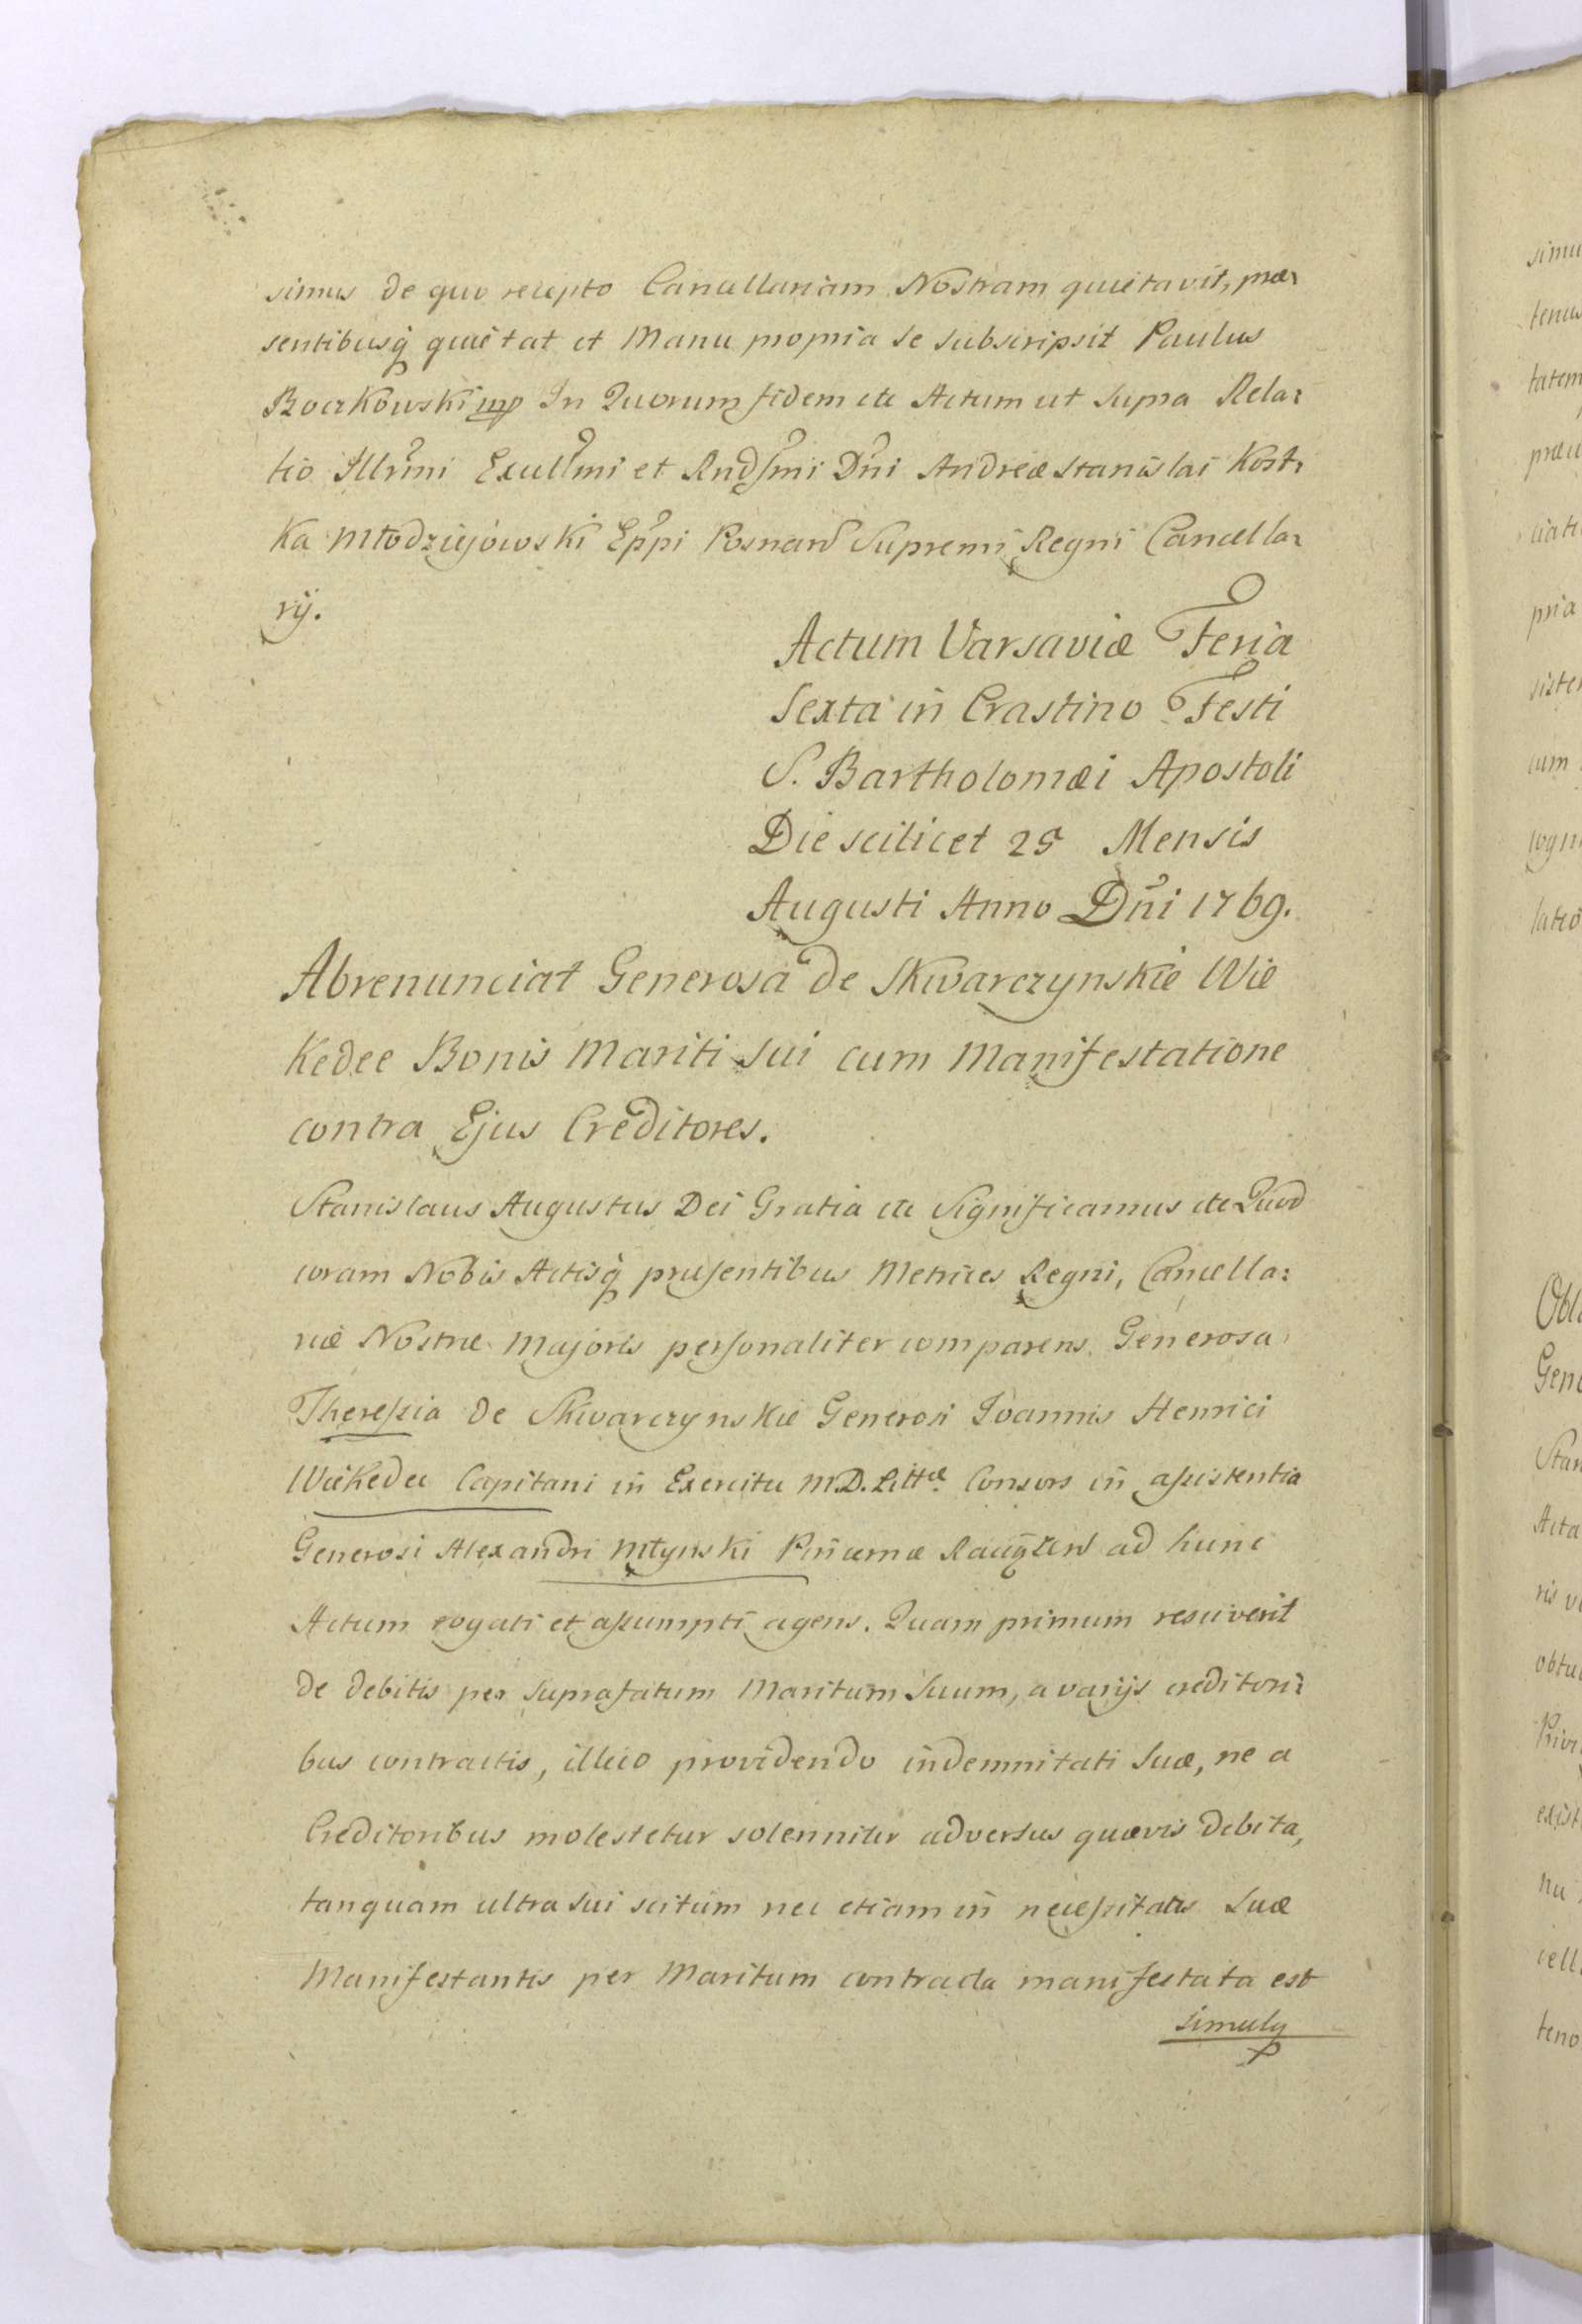 simus de quo recepto Cancellariam Nostram quietavit, præ=
sentibusq́ quietat et Manu propria se subscripsit Paulus
Boczkowski mp In Quorum fidem etc Actum ut supra Rela=
tio Illrmi Excellmi et Rndſmi Dni Andreæ Stanislai Kost=
ka Młodziejowski Eppi Posnan Supremi Regni Cancella=
rij.
Actum Varsaviæ Feria
Sexta in Crastino Festi
S. Bartholomæi Apostoli
Die scilicet 25 Mensis
Augusti Anno Dni 1769.
Abrenunciat Generosa de Skwarczynskie Wie
kedee Bonis Mariti sui cum Manifestatione
contra Ejus Creditores.
Stanislaus Augustus Dei Gratia etc Significamus etc Quod
coram Nobis Actisq́ præsentibus Metrices Regni, Cancella=
riæ Nostræ Majoris perſonaliter comparens Generosa
Thereſsia de Skwarczynskie Generosi Joannis Henrici
Wiekedee Capitani in Exercitu M.D. Littæ Consors in aſsistentia
Generosi Alexandri Młynski Pincernæ ad hunc
Actum rogati et aſsumpti agens. Quam primum resciverit
de debitis per suprafatum Maritum Suum, a varijs creditori=
bus contractis, illico providendo indemnitati Suæ, ne a
Creditoribus molestetur solenniter adversus quævis debita,
tanquam ultra sui scitum nec etiam in neceſsitatis Suæ
Manifestantis per Maritum contracta manifestata est
simulq
simu
tenus
tatem
pria
cum
Obla
Gene
Stan
Acta
obtu
exist
cell
teno